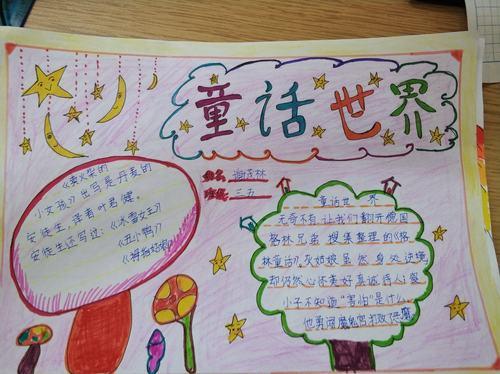 童话世界
姓名：谢茂林
班级：三五
《卖火柴的
小女孩》出写是丹麦的
安徒生，译者叶君健。
安徒生还写过：《冰雪女王》
《丑小鸭》
《拇指姑娘》
童话世界
无奇不有，让我们翻开德国
格林兄弟 搜集整理的《格
林童话》，灰姑娘虽然身处逆境
却仍然心还美好真诚待人；傻
小子不知道"害怕"是什么，
他勇闯魔鬼宫打败了恶魔